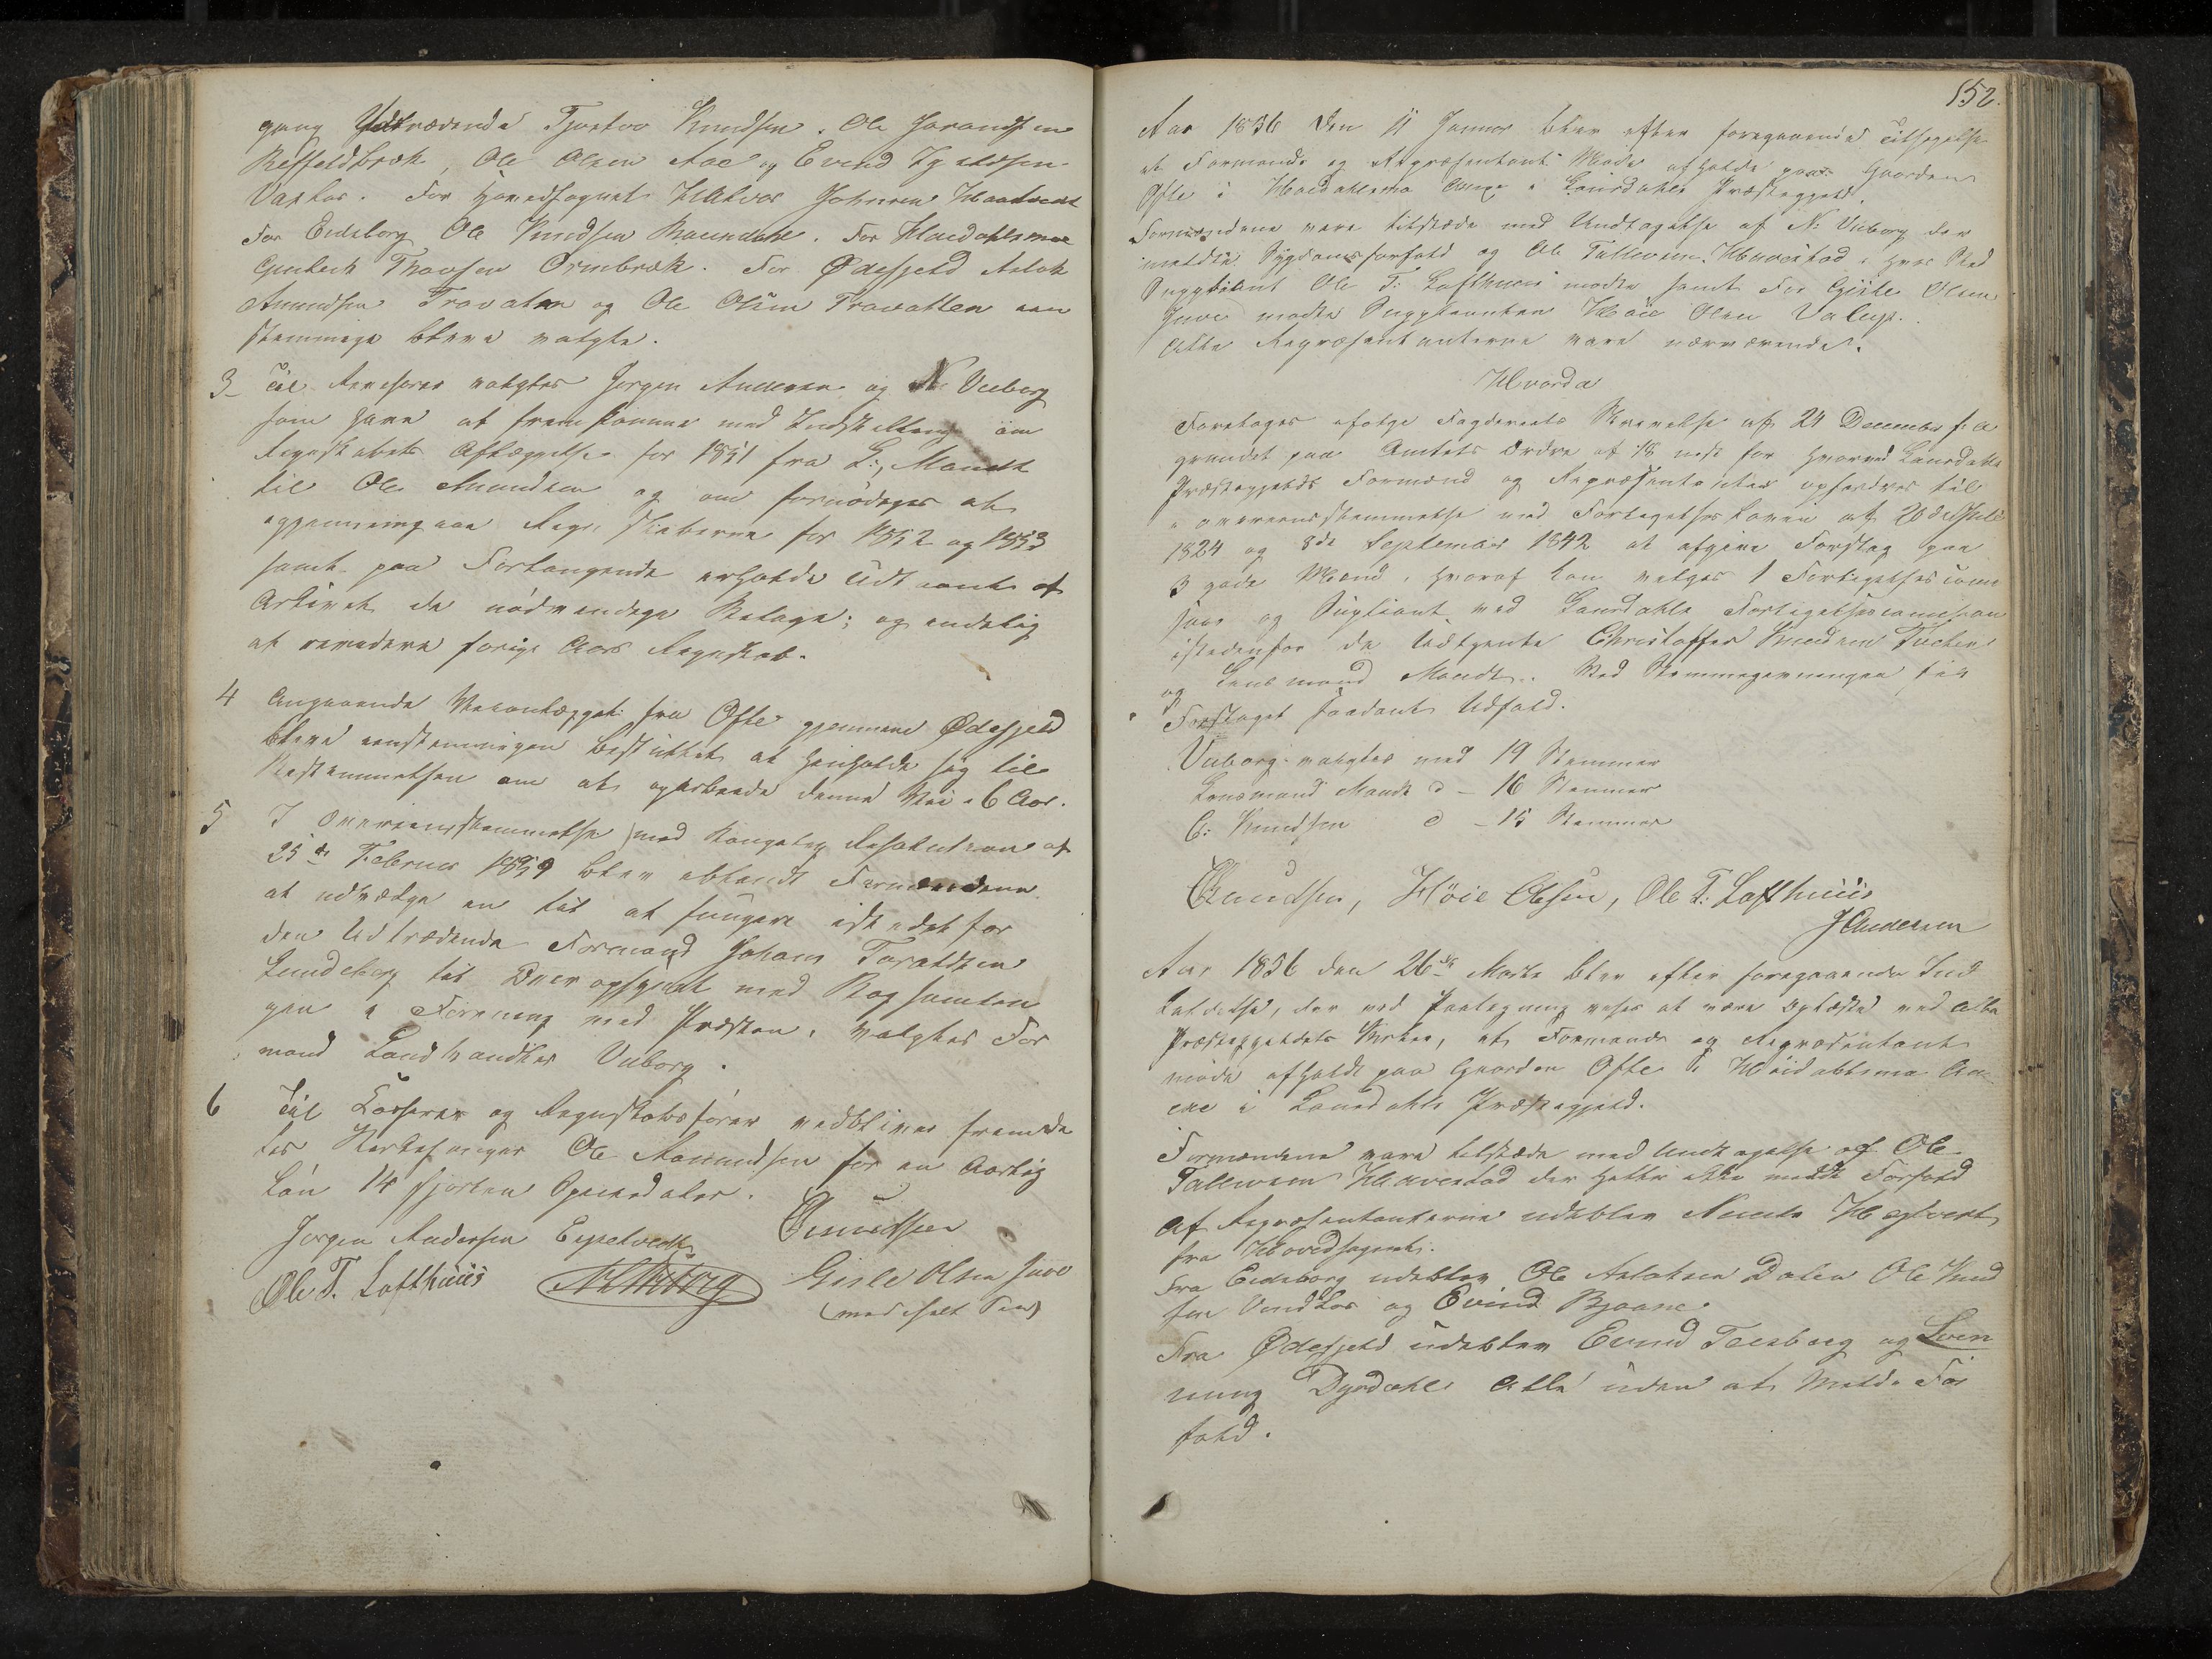 gang Udtrædende Tjostov Knudsen. Ole Jorandsen
Ole Olsen Aae og Evend
Vaskos. For Hovedsognet Halvor Johnsen
For Eidsborg Ole Knudsen Ravndahl. For Høidalsmoe
Gunleik Thovsen Ormbræk. For Ødefjeld Aslak
Amundsen Trovaten og Ole Olsen Trovatten een
stemmige bleve valgte.
3 Til Revisorer valgtes Jørgen Andersen og N. Viiborg
som have at fremkomme med Indstilling om
Regnskabets Aflæggelse for 1851 fra L. Mandt
til Ole Amundsen og om fornødiges at
igjennemgaae Regnskaberne for 1852 og 1853
samt paa Forlangende erholde Udlaant af
Arkivet de nødvendige Bilage; og endelig
at revidere forige Aars Regnskab.
4 Angaaende Veianlægget fra Ofte gjennem Ødefjeld
bleve eenstemmigen besluttet at henholde sig til
Bestemmelsen om at oparbeide denne Vei i 6 Aar.
5 I Overeensstemmelse med Kongelig Resolution af
25de Februar 1859 blev iblandt Formændene
at udvælge en til at fungere istedet for
den Udtrædende Formand Johans Taraldsen
Lundeberg til Overopsynet med Bogsamlin
gen i Forening med Præsten, valgtes For
mand Landhandler Viiborg.
6 Til Casserer og Regnskabsfører vedbliver fremde
les Kirkesanger Ole Aamundsen for en Aarlig
Løn 14 fjorten Speciedaler.
Jørgen Andersen Eepetvedt Knudsen
Ole T. Lofthuus NViiborg Gisle Olsen Juve
(med iholt Pen)
152.
Aar 1856 den 11 Januar blev efter foregaaende Tilsigelse
et Formands og Repræsentant Møde afholdt paa Gaarden
Ofte i Høidahlsmo Annex i Laurdahls Præstegjeld.
Formændene vare tilstæde med Undtagelse af N. Viiborg der
meldte Sygdomsforfald og Ole Tallevsen Haverstad i hvis Sted
Suppleant Ole T. Lofthuus mødte samt For Gisle Olsen
Juve mødte Suppleanten Høie Olsen
Alle Repræsentanterne vare nærværende.
Hvorda
Foretages ifølge Fogderiets Skrivelse af 24 December f. A
grundet paa Amtets Ordre af 18 næst før hvorved Laurdahls
Præstegjelds Formænd og Repræsentanter opfordres til
i overeensstemmelse med Forligelses Loven af 20de Juli
1824 og 8de September 1842 at afgive Forslag paa
3 gode Mænd, hvoraf kan vælges 1 Forligelsescomi
sair og Supliant ved Laurdahls Forligelsescomission
istedenfor de Udtjente Christoffer Knudsen
og Lensmand Mandt. Ved Stemmegivningen fik
Forslaget saadant Udfald.
Viiborg valgtes med 19 Stemmer
Lensmand Mandt d - 16 Stemmer
C. Knudsen d - 15 Stemmer
CKnudsen, Høie Olsen, Ole T. Lofthuus
JAndersen
Aar 1856 den 26de Marts blev efter foregaaende Ind
kaldelse, der ved Paategning vises at være oplæste ved alle
Præstegjeldets Kirker, et Formands og Repræsentant
møde afholdt paa Gaarden Ofte i Høidahlsmo An
nex i Laurdahls Præstegjeld.
Formændene vare tilstæde med Undtagelse af Ole
Tallevsen Haverstad der heller ikke meldte Forfald
Af Repræsentanterne udeblev
fra Hovedsognet.
Fra Eidsborg udeblev Ole Aslaksen Dalen Ole Knud
sen og Evind Bjaane
Fra Ødefjeld udeblev Evind og Sven
nung Dyrdahl Alle uden at Melde For
fald.